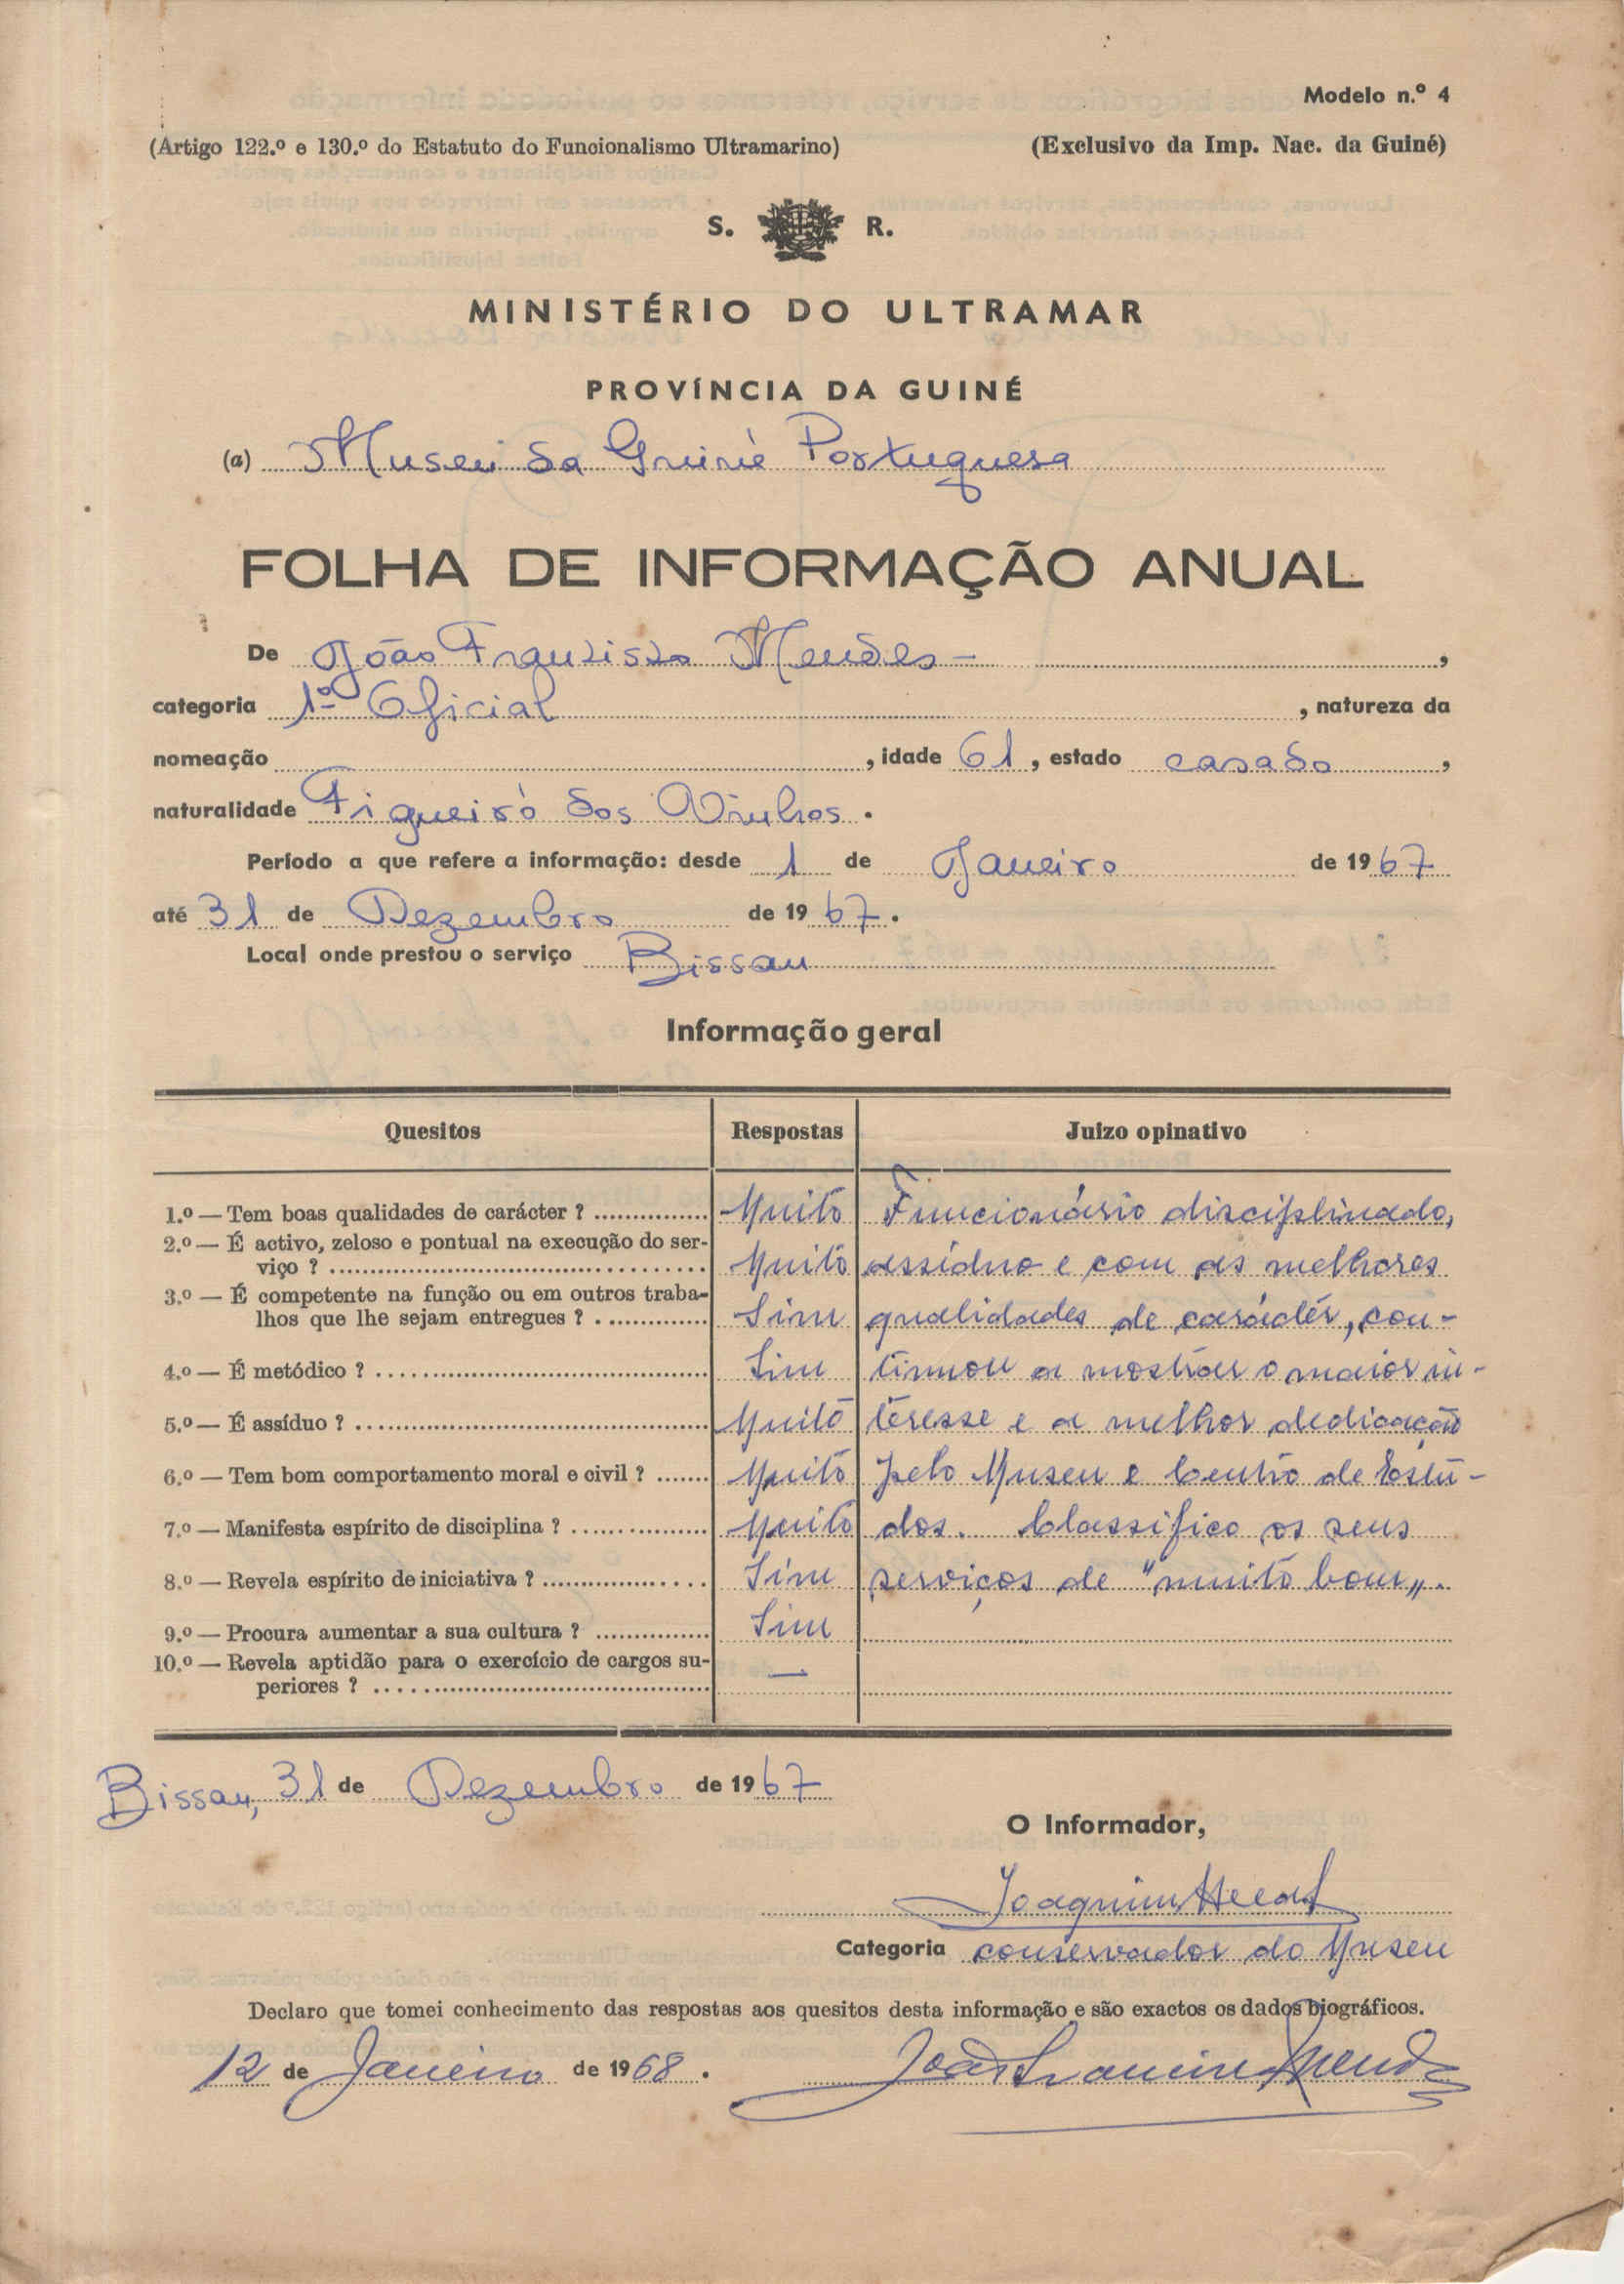 Modelo n.º 4
(Artigo 122.º e 130.º do Estatuto do Funcionalismo Ultramarino) (Exclusivo da Imp. Nac. da Guiné)
S. R.
MINISTÉRIO DO ULTRAMAR
PROVÍNCIA DA GUINÉ
(a) Museu da Guiné Portuguesa
FOLHA DE INFORMAÇÃO ANUAL
De João Francisco Mendes –,
categoria 1º Oficial, natureza da
nomeação, idade 61, estado casado,
naturalidade Figueiró dos Vinhos.
Período a que refere a informação: desde 1 de Janeiro de 1967
até 31 de Dezembro de 1967.
Local onde prestou o serviço Bissau
Informação geral
Quesitos Respostas Juizo opinativo
1.º — Tem boas qualidades de carácter? Muito Funcionário disciplinado,
2.º — É activo, zeloso e pontual na execução do ser-
viço? Muito assíduo e com as melhores
3.º — É competente na função ou em outros traba-
lhos que lhe sejam entregues? Sim qualidades de carácter, con-
4.º — É metódico? Sim tinuou a mostrar o maior in-
5.º — É assíduo? Muito teresse e a melhor dedicação
6.º — Tem bom comportamento moral e civil? Muito pelo Museu e Centro de Estu-
7.º — Manifesta espírito de disciplina? Muito dos. Classifico os seus
8.º — Revela espírito de iniciativa? Sim serviços de "muito bom".
9.º — Procura aumentar a sua cultura? Sim
10.º — Revela aptidão para o exercício de cargos su-
periores? —
Bissau, 31 de Dezembro de 1967
O Informador,
Joaquim
Categoria conservador do Museu
Declaro que tomei conhecimento das respostas aos quesitos desta informação e são exactos os dados biográficos.
12 de Janeiro de 1968. João Francisco Mendes